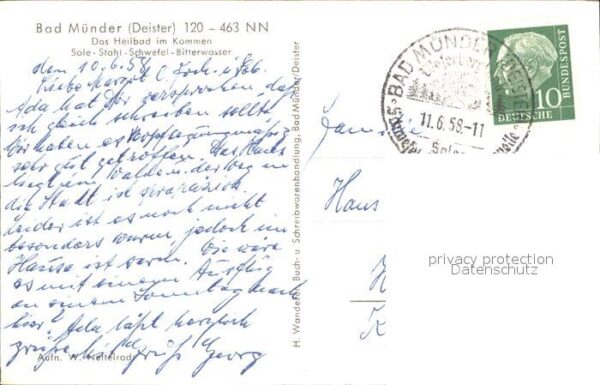 Bad Münder (Deister) 120 - 463 NN
Das Heilbad im Kommen
Sole - Stahl - Schwefel - Bitterwasser
den 10.6.58
Liebe Margot
Ada hat Dir versprochen, daß
ich gleich schreiben sollte
Wir haben es verpflegungsmäßig
sehr gut getroffen. Das Haus
liegt im Walde u. der Weg in
die Stadt ist
Leider ist es noch nicht
besonders warm jedoch im
Hause ist warm. Wie wäre
es mit einem Ausflug
an einem Sonntag nach
hier? Ada läßt herzlich
grüßen Georg
Aufn. W.
H. Wanderer, Buch- u. Schreibwarenhandlung, Bad Münder/Deister
BAD MÜNDER (DEISTER)
11.6.58.-11
Sole
10
DEUTSCHE
BUNDESPOST
Haus
H
K
privacy protection
Datenschutz